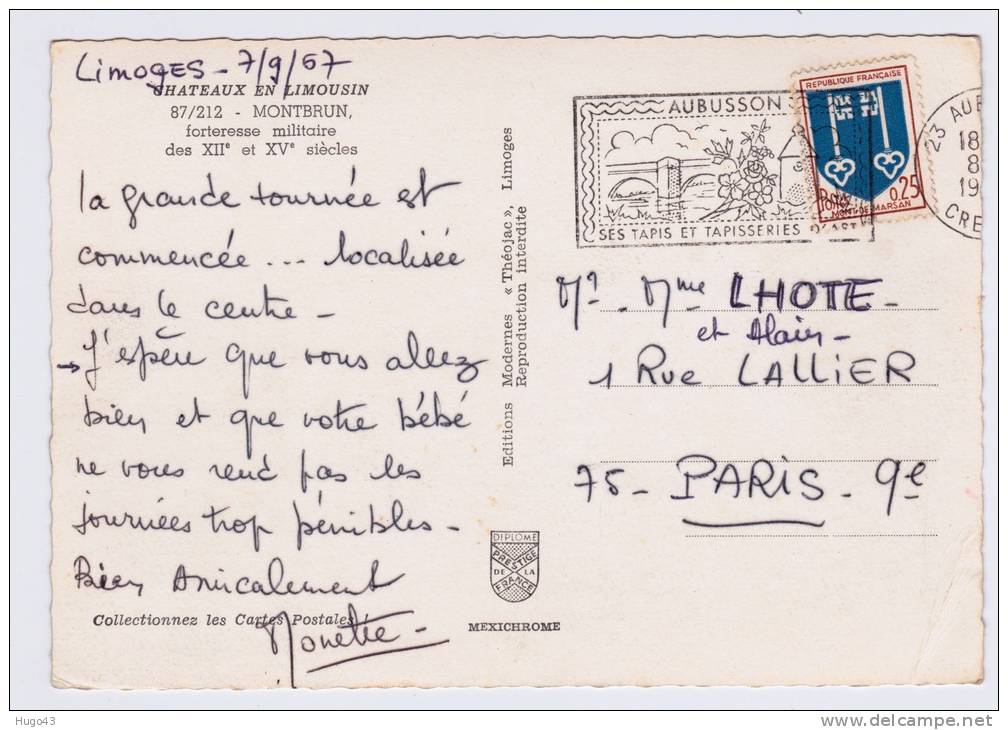 Limoges - 7/9/67
CHATEAUX EN LIMOUSIN
87/212 - MONTBRUN,
forteresse militaire
des XIIe et XVe siècles
la grande tournée est
commencée ... localisée
dans le centre -
J'espère que vous allez
bien et que votre bébé
ne vous rend pas les
journées trop pénibles -
Bien Amicalement
Collectionnez les Cartes Postales !
Editions Modernes « Théojac », Limoges
Reproduction interdite
DIPLOME
PRESTIGE
DE LA
FRANCE
MEXICHROME
AUBUSSON
SES TAPIS ET TAPISSERIES D'ART
REPUBLIQUE FRANÇAISE
Postes 0,25
MONT-DE-MARSAN
23 AUB
18
8
19
CRE
Mr. Mme LHOTE -
et Alain -
1 Rue LALLIER
75 - PARIS - 9e
Hugo43
www.delcampe.net